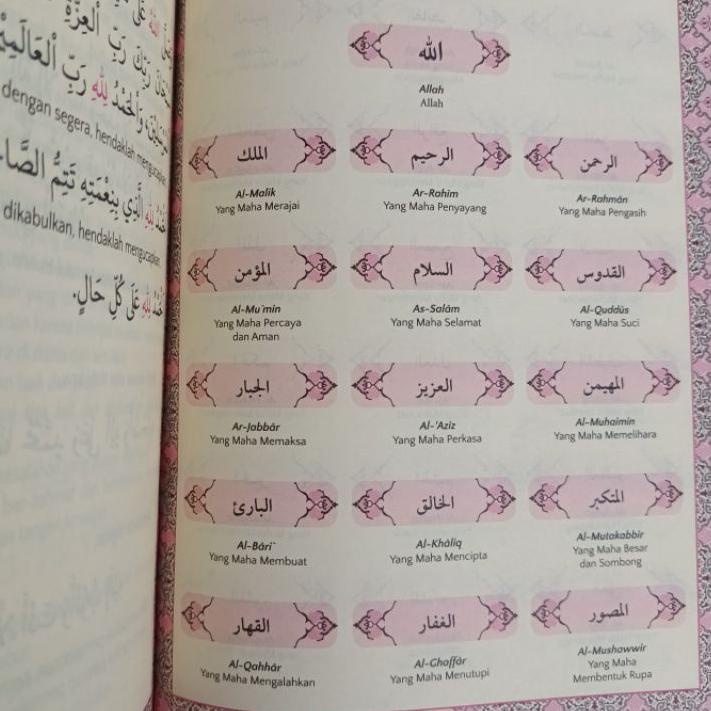 رَبِّكَ رَبِّ الْعِزَّةِ
وَالْحَمْدُ لِلّٰهِ رَبِّ الْعَالَمِيْنَ
dengan segera, hendaklah mengucapkan
لِلّٰهِ الَّذِي بِنِعْمَتِهِ تَتِمُّ
dikabulkan, hendaklah mengucapkan
لِلّٰهِ عَلَى كُلِّ حَالٍ.
الله
Allah
Allah
الرحمن
Ar-Rahmān
Yang Maha Pengasih
الرحيم
Ar-Rahim
Yang Maha Penyayang
الملك
Al-Malik
Yang Maha Merajai
القدوس
Al-Quddūs
Yang Maha Suci
السلام
As-Salām
Yang Maha Selamat
المؤمن
Al-Mu'min
Yang Maha Percaya
dan Aman
المهيمن
Al-Muhaimin
Yang Maha Memelihara
العزيز
Al-'Aziz
Yang Maha Perkasa
الجبار
Ar-Jabbār
Yang Maha Memaksa
المتكبر
Al-Mutakabbir
Yang Maha Besar
dan Sombong
الخالق
Al-Khāliq
Yang Maha Mencipta
البارئ
Al-Bāri'
Yang Maha Membuat
المصور
Al-Mushawwir
Yang Maha
Membentuk Rupa
الغفار
Al-Ghaffār
Yang Maha Menutupi
القهار
Al-Qahhār
Yang Maha Mengalahkan